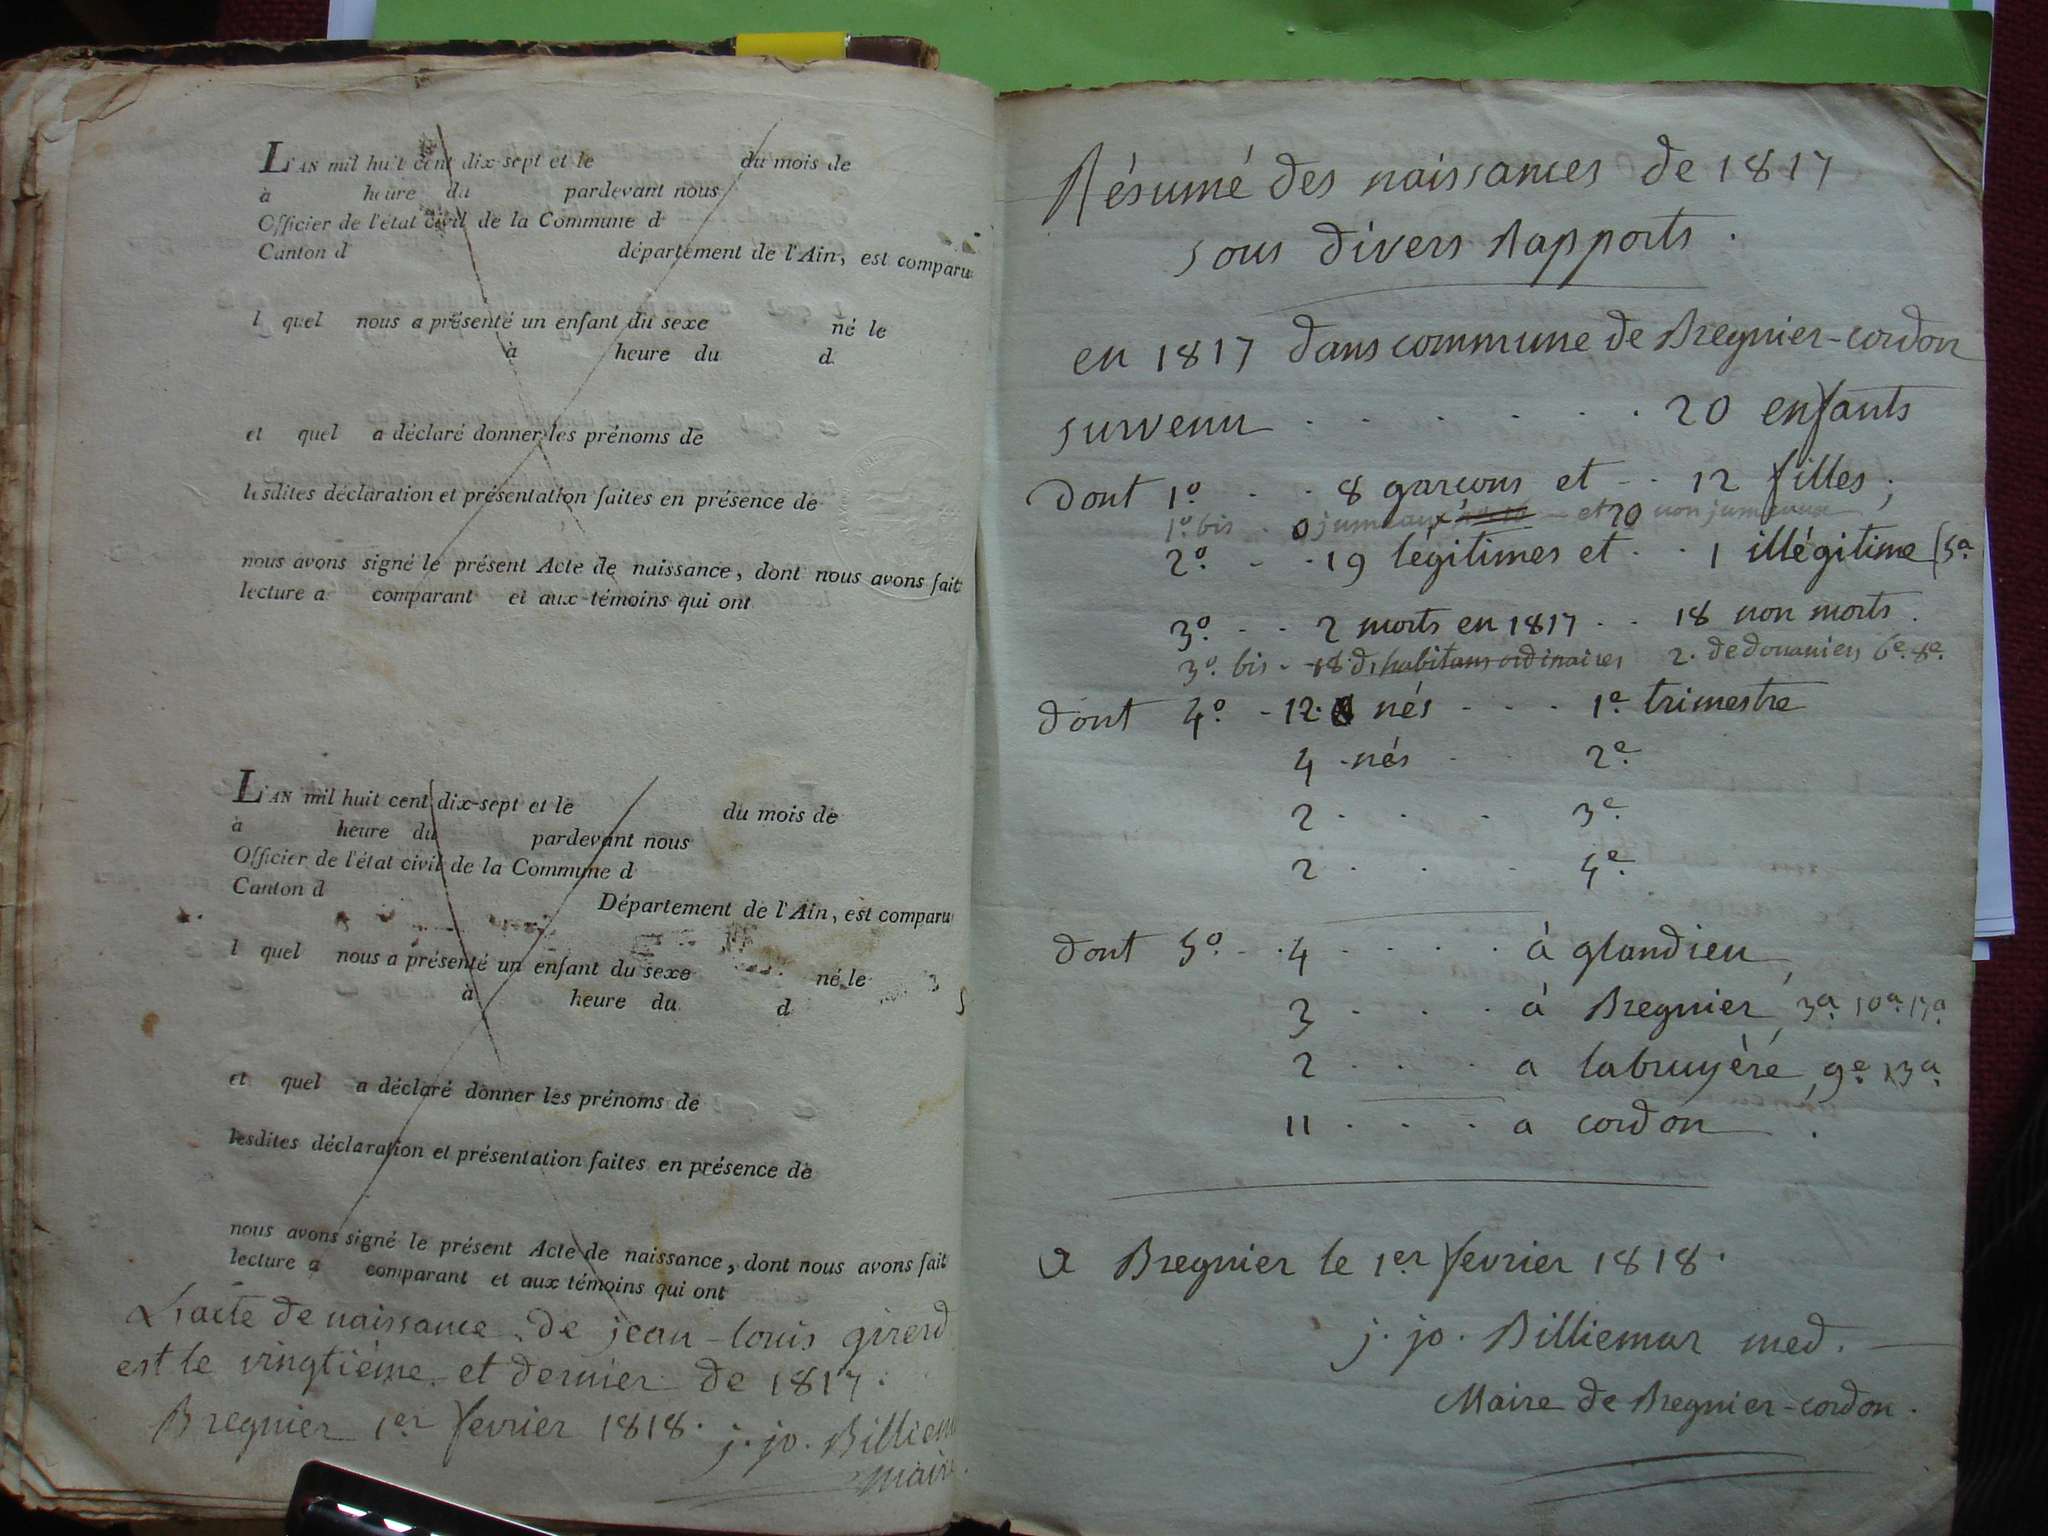 L'AN mil huit cent dix-sept et le du mois de
à heure du pardevant nous
Officier de l'état civil de la Commune d
Canton d département de l'Ain, est comparu
l quel nous a présenté un enfant du sexe né le
à heure du d
et quel a déclaré donner les prénoms de
lesdites déclaration et présentation faites en présence de
nous avons signé le présent Acte de naissance, dont nous avons fait
lecture a comparant et aux témoins qui ont
L'AN mil huit cent dix-sept et le du mois de
à heure du pardevant nous
Officier de l'état civil de la Commune d
Canton d Département de l'Ain, est comparu
l quel nous a présenté un enfant du sexe né le
à heure du d
et quel a déclaré donner les prénoms de
lesdites déclaration et présentation faites en présence de
nous avons signé le présent Acte de naissance, dont nous avons fait
lecture a comparant et aux témoins qui ont
L'acte de naissance de jean-louis girerd
est le vingtième et dernier de 1817.
Bregnier 1er fevrier 1818. j. jo. Billiem
maire
Résumé des naissances de 1817
sous divers Rapports.
en 1817 dans commune de Bregnier-cordon
survenu . . . . . . 20 enfants
dont 1º. . . 8 garçons et . . 12 filles;
1º. bis . 0 jumeaux et 20 non jumeaux
2º. . . 19 légitimes et . . 1 illégitime (5a.
3º. . . 2 morts en 1817 . . 18 non morts.
3º. bis . 18 d'habitans ordinaires 2. de douaniers 6e. 8e.
dont 4º. . 12. nés . . . 1e. trimestre
4 . nés . . 2e.
2 . . . 3e.
2 . . . 4e.
dont 5º. . . 4 . . . . à glandieu,
3 . . . . à Bregnier, 3a. 10a. 17a.
2 . . . . a labruyère, 9e. 13a.
11 . . . a cordon.
a Bregnier le 1er fevrier 1818.
j. jo. Billiemar med.
Maire de Bregnier-cordon.